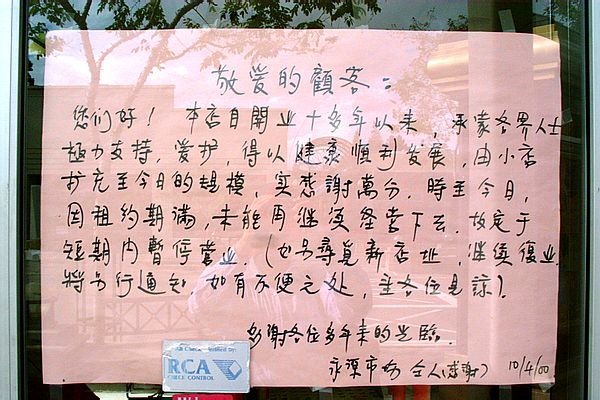 敬爱的顧客：
您们好！本店自開业十多年以来，承蒙各界人士
极力支持，爱护，得以健康順利发展，由小店
扩充至今日的規模，实感謝萬分，時至今日，
因租约期滿，未能再継续经营下去，故定于
短期内暫停营业．（如另尋覓新店址，継续復业
将另行通知．如有不便之处，至各位見諒）．
多謝各位多年来的光臨．
永 市场 仝人（感謝） 10/4/00
RCA
CHECK CONTROL